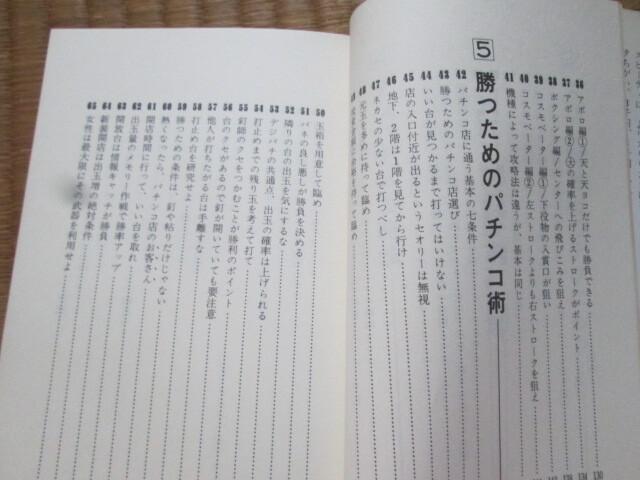 36 アポロ編①/天と天ヨコだけでも勝負できる
37 アポロ編②/天の確率を上げるストロークがポイント
38 ボクシング編/センターへの飛びこみを狙え
39 コスモペーター編①/下段役物の入賞口が狙い
40 コスモペーター編②/左ストロークよりも右ストロークを狙え
41 機種によって攻略法は違うが、基本は同じ
5 勝つためのパチンコ術
42 パチンコ店に通う基本の七条件
43 勝つためのパチンコ店選び
44 いい台が見つかるまで打ってはいけない
45 店の入口付近が出るというセオリーは無視
46 地下、2階は1階を見てから行け
47 ネカセの少ない台で打つべし
48 元玉を多めに持って臨め
49
50 玉箱を用意して臨め
51 バネの良し悪しが勝負を決める
52 隣りの台の出玉を気にするな
53 デジパチの共通点、出玉の確率は上げられる
54 打止めまでの残り玉を考えて打て
55 釘師のクセをつかむことが勝利のポイント
56 台のクセがあるので釘が開いていても要注意
57 他人が打ちたがる台は手離すな
58 打止め台を研究せよ
59 勝つための条件は、釘や粘りだけじゃない
60 熱くなったら、パチンコ店のお客さん
61 開店時間に行って、いい台を取れ
62 出玉量のメモリー作戦で勝率アップ
63 開放台は情報キャッチが勝負
64 新装開店は出玉増の絶対条件
65 女性は最大限にその武器を利用せよ